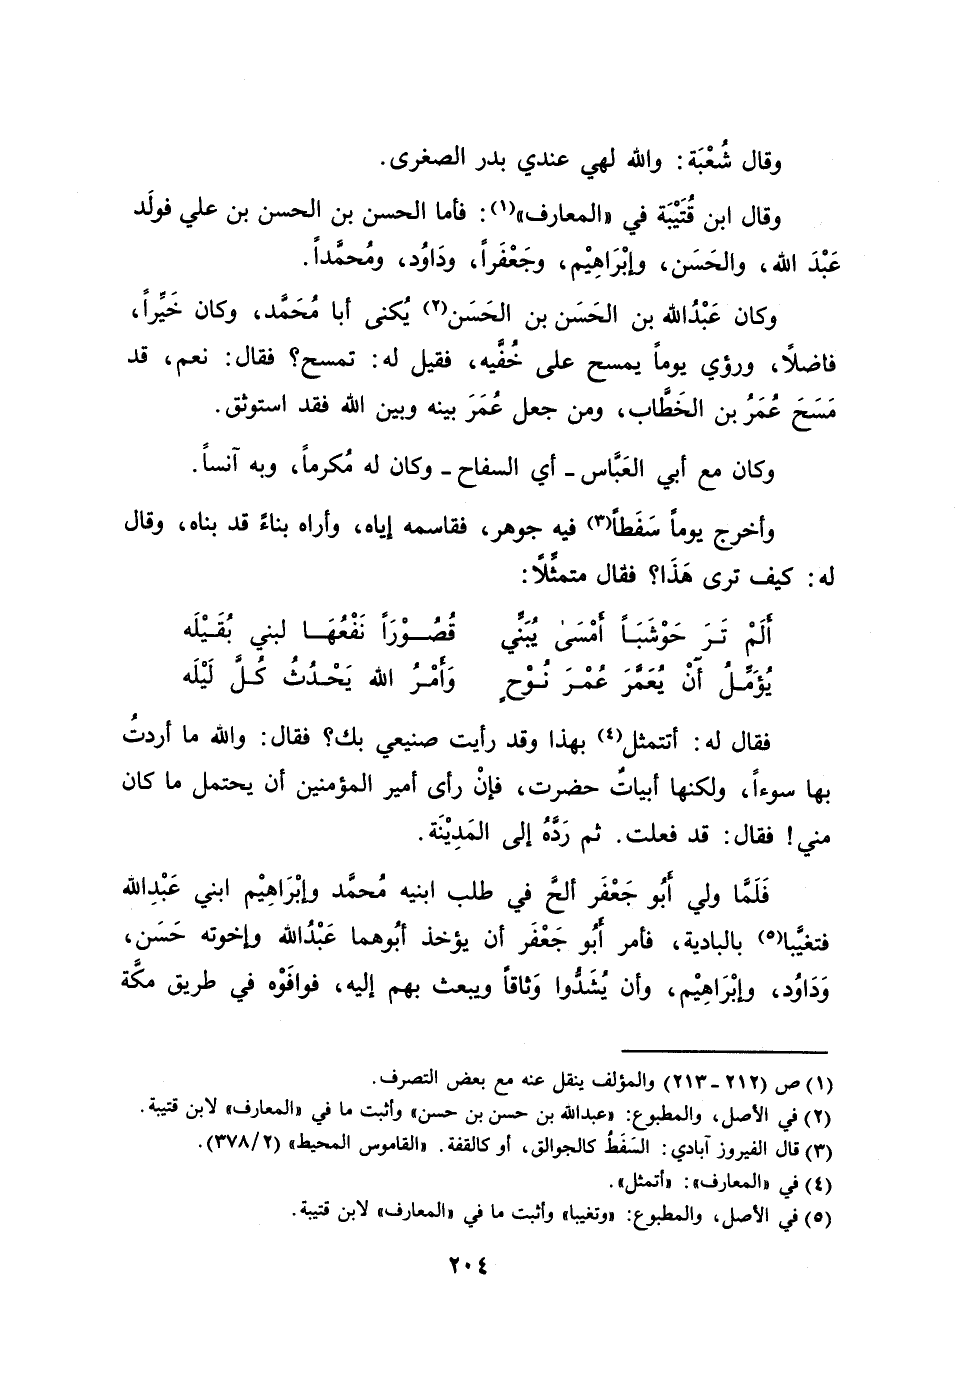 وقال شُعْبَة: والله لهي عندي بدر الصغرى.
وقال ابن قُتَيْبَة في «المعارف»(١): فأما الحسن بن الحسن بن علي فولَد
عَبْدَ الله، والحَسَن، وإبْرَاهِيْم، وجَعْفَراً، ودَاوُد، ومُحمَّداً.
وكان عَبْدُالله بن الحَسَن بن الحَسَن(٢) يُكنى أبا مُحَمَّد، وكان خَيِّراً،
فاضلًا، ورؤي يوماً يمسح على خُفَّيه، فقيل له: تمسح؟ فقال: نعم، قد
مَسَحَ عُمَرُ بن الخَطَّاب، ومن جعل عُمَرَ بينه وبين الله فقد استوثق.
وكان مع أبي العَبَّاس ـ أي السفاح ـ وكان له مُكرماً، وبه آنساً.
وأخرج يوماً سَفَطاً(٣) فيه جوهر، فقاسمه إياه، وأراه بناءً قد بناه، وقال
له: كيف ترى هَذَا؟ فقال متمثِّلًا:
أَلَمْ تَـرَ حَوْشَبَـاً أَمْسَىٰ يُبَنِّي قُصُـوْرَاً نَفْعُهَـا لبني بُقَـيْلَه
يُؤَمِّـلُ أَنْ يُعَمَّرَ عُمْـرَ نُـوْحٍ وَأَمْـرُ الله يَحْـدُثُ كُـلَّ لَيْلَه
فقال له: أتتمثل(٤) بهذا وقد رأيت صنيعي بك؟ فقال: والله ما أردتُ
بها سوءاً، ولكنها أبياتٌ حضرت، فإنْ رأى أمير المؤمنين أن يحتمل ما كان
مني! فقال: قد فعلت. ثم رَدَّهُ إلى المَدِيْنَة.
فَلَمَّا ولي أَبُو جَعْفَر ألحَّ في طلب ابنيه مُحمَّد وإبْرَاهِيْم ابني عَبْدِالله
فتغيَّبا(٥) بالبادية، فأمر أَبُو جَعْفَر أن يؤخذ أبُوهما عَبْدُالله وإخوته حَسَن،
وَدَاوُد، وإبْرَاهِيْم، وأن يُشَدُّوا وَثاقاً ويبعث بهم إليه، فوافَوْه في طريق مكَّة
(١) ص (٢١٢ ـ ٢١٣) والمؤلف ينقل عنه مع بعض التصرف.
(٢) في الأصل، والمطبوع: «عبدالله بن حسن بن حسن» وأثبت ما في «المعارف» لابن قتيبة.
(٣) قال الفيروز آبادي: السَفَطُ كالجوالق، أو كالقفة. «القاموس المحيط» (٣٧٨/٢).
(٤) في «المعارف»: «أتمثل».
(٥) في الأصل، والمطبوع: «وتغيبا» وأثبت ما في «المعارف» لابن قتيبة.
٢٠٤